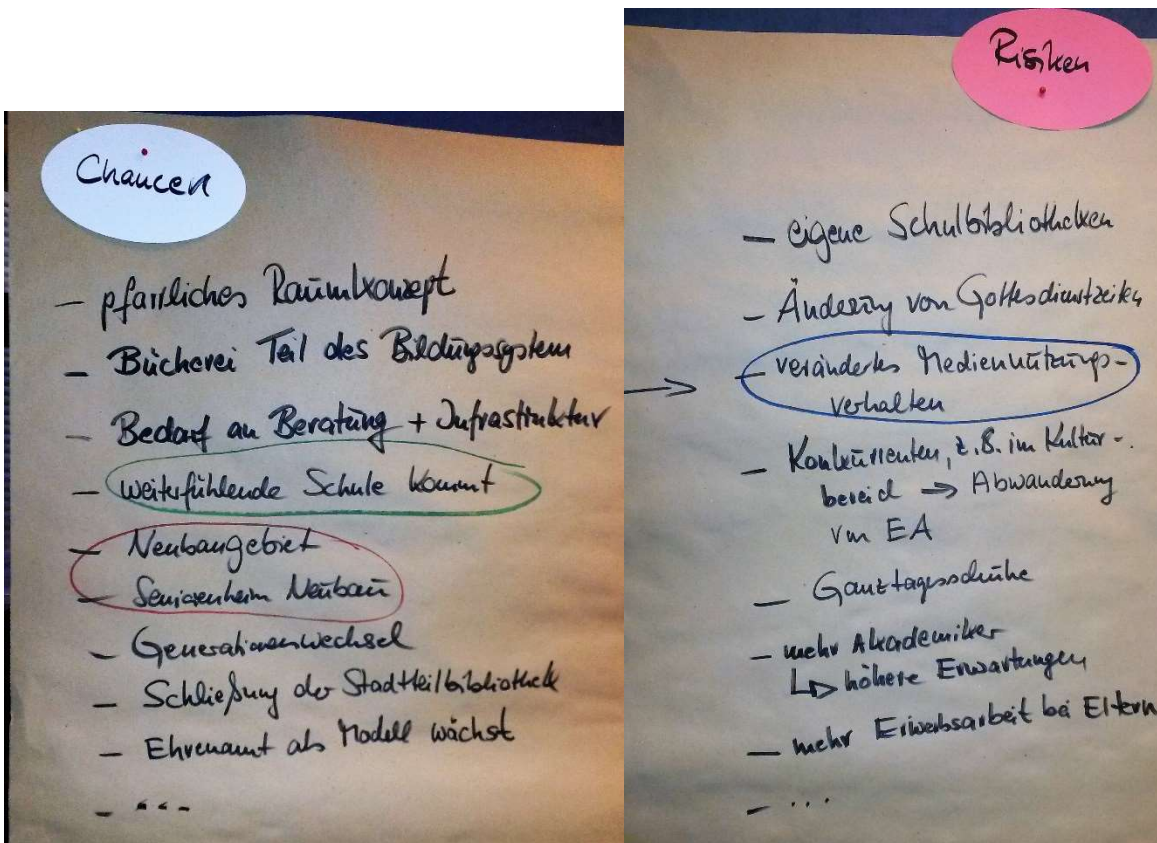 Chancen
– pfarrliches Raumkonzept
– Bücherei Teil des Bildungssystem
– Bedarf an Beratung + Infrastruktur
– weiterführende Schule kommt
– Neubaugebiet
– Seniorenheim Neubau
– Generationenwechsel
– Schließung der Stadtteilbibliothek
– Ehrenamt als Modell wächst
– ...
Risiken
– eigene Schulbibliotheken
– Änderung von Gottesdienstzeiten
→ – verändertes Mediennutzungs-
verhalten
– Konkurrenten, z.B. im Kultur-
bereich → Abwanderung
von EA
– Ganztagsschule
– mehr Akademiker
↳ höhere Erwartungen
– mehr Erwerbsarbeit bei Eltern
– ...